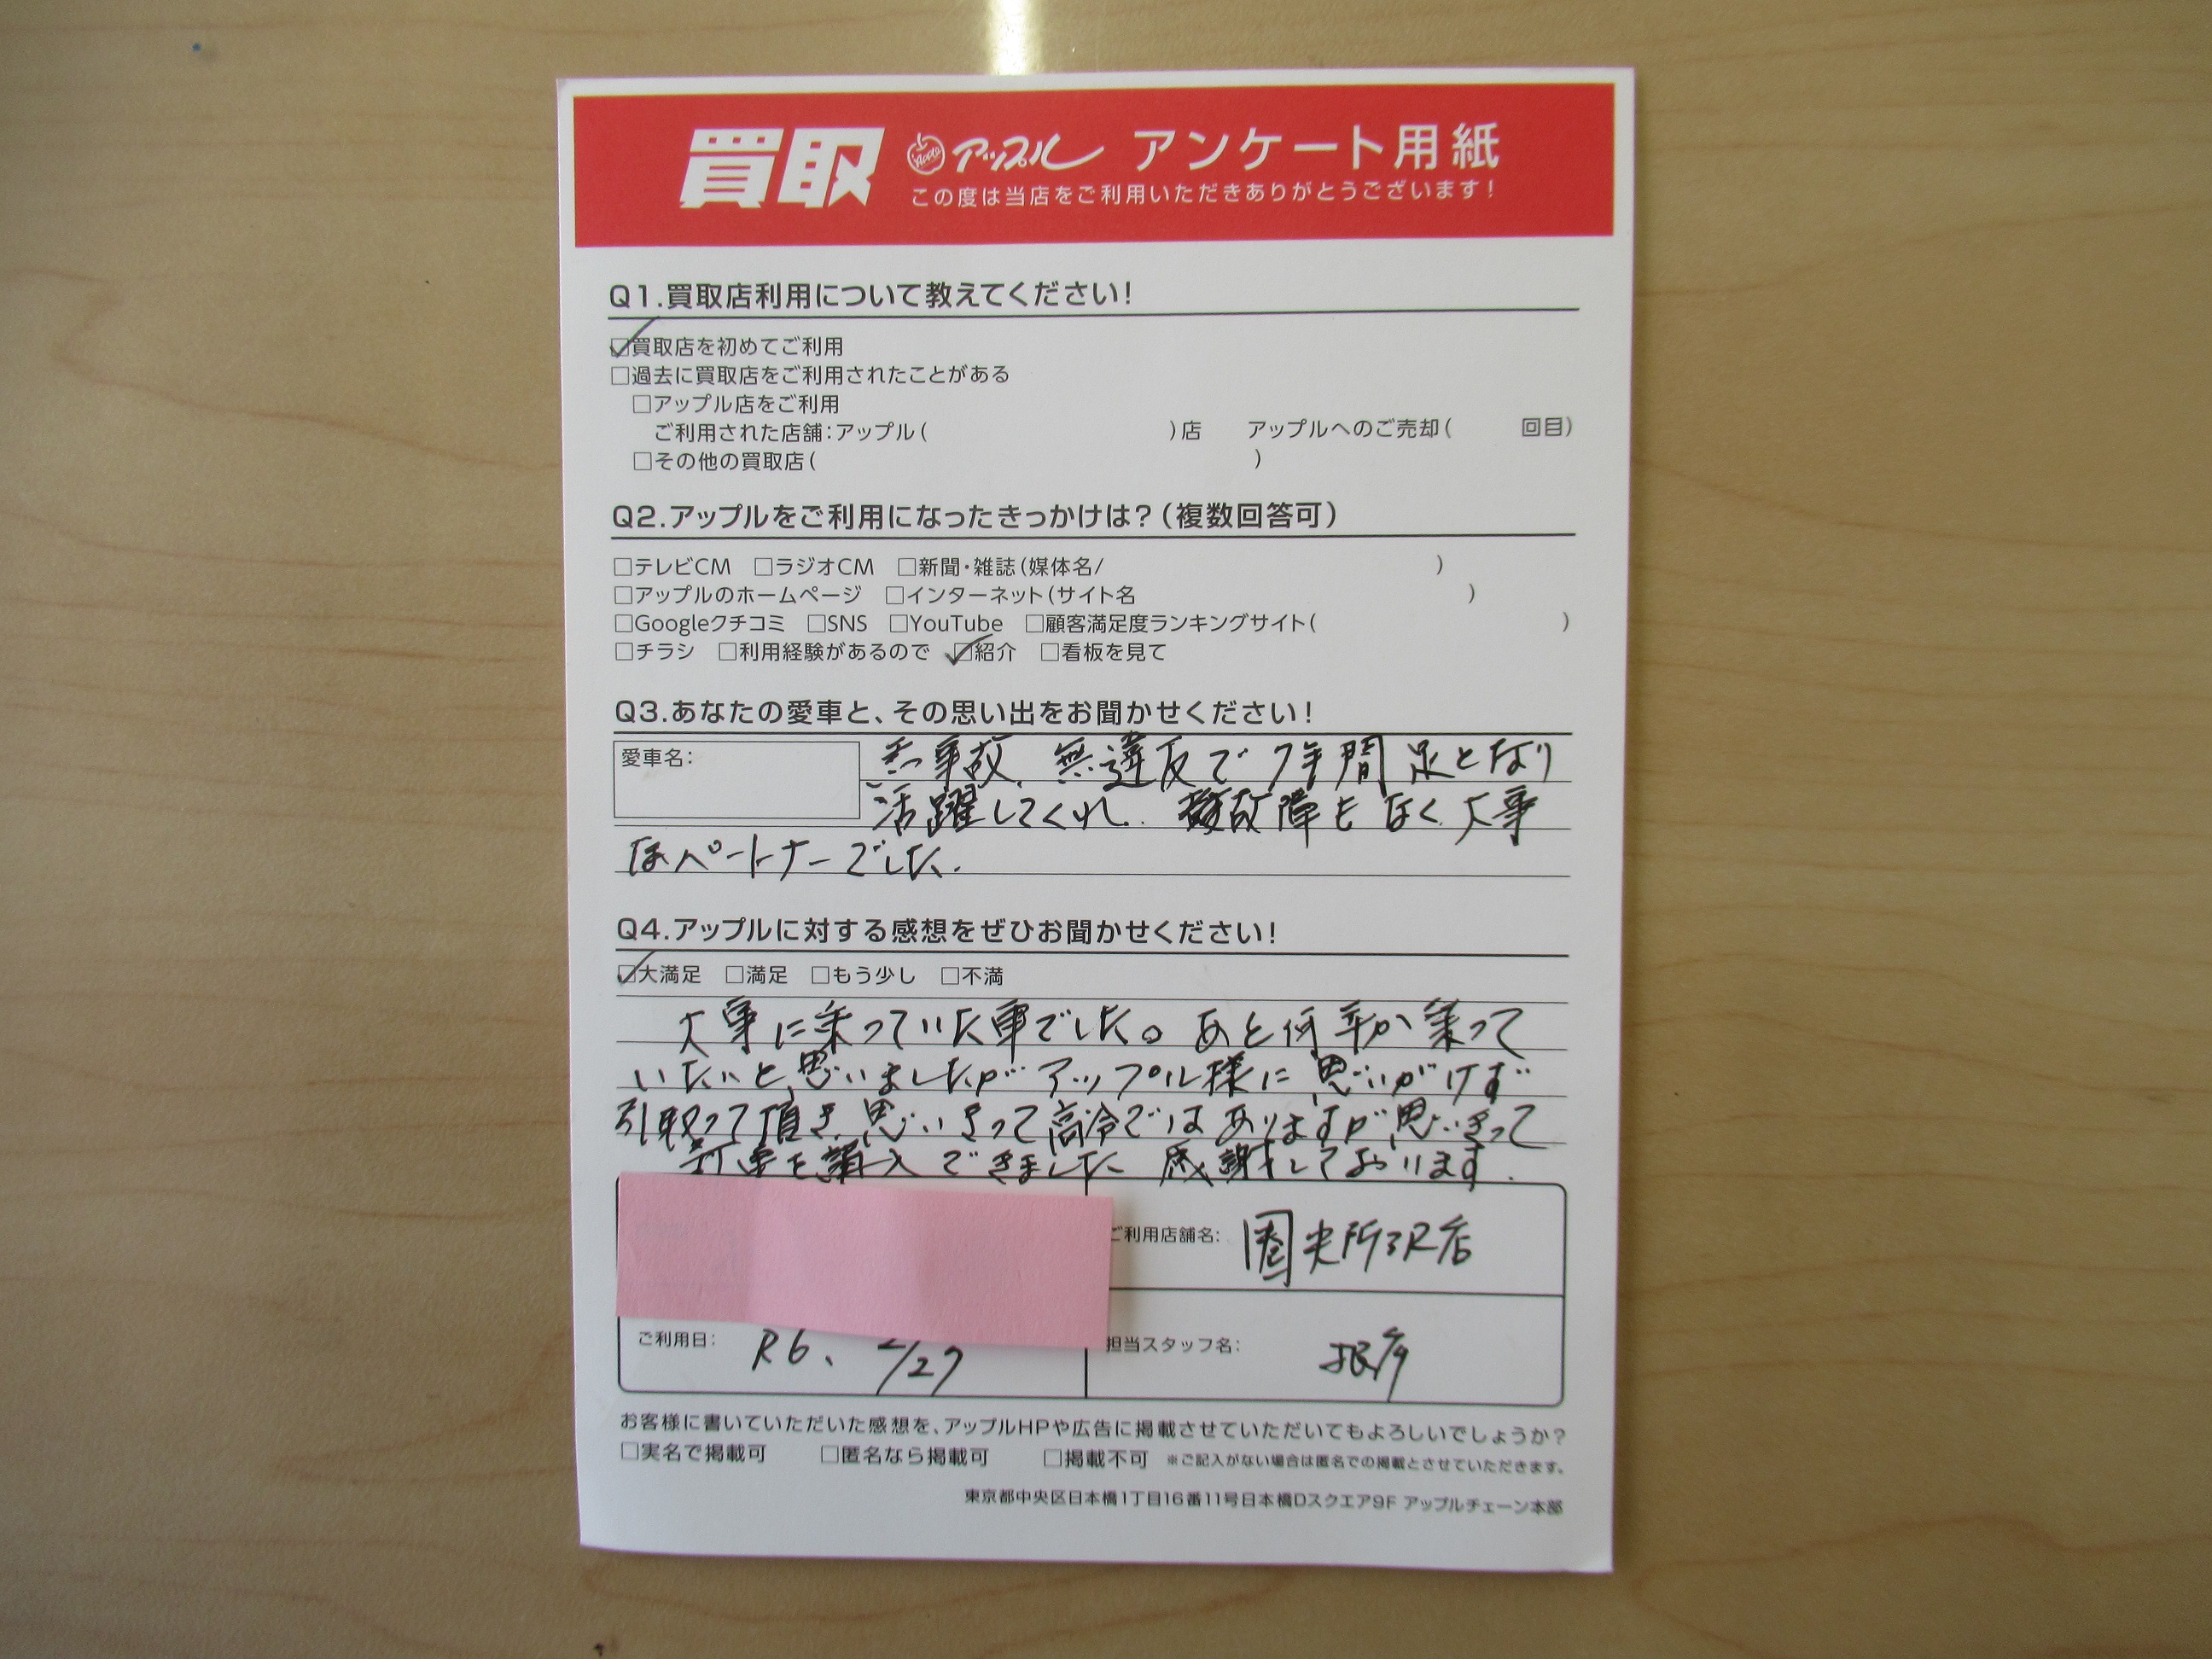 買取 Apple アップル アンケート用紙
この度は当店をご利用いただきありがとうございます!
Q1.買取店利用について教えてください!
☑買取店を初めてご利用
□過去に買取店をご利用されたことがある
□アップル店をご利用
ご利用された店舗:アップル( )店 アップルへのご売却( 回目)
□その他の買取店( )
Q2.アップルをご利用になったきっかけは?(複数回答可)
□テレビCM □ラジオCM □新聞・雑誌(媒体名/ )
□アップルのホームページ □インターネット(サイト名 )
□Googleクチコミ □SNS □YouTube □顧客満足度ランキングサイト( )
□チラシ □利用経験があるので ☑紹介 □看板を見て
Q3.あなたの愛車と、その思い出をお聞かせください!
愛車名: 無事故、無違反で7年間足となり
活躍してくれ、故障もなく大事
なパートナーでした.
Q4.アップルに対する感想をぜひお聞かせください!
☑大満足 □満足 □もう少し □不満
大事に乗っていた車でした。あと何年か乗って
いたいと思いましたがアップル様に思いがけず
引取って頂き、思いきって高令ではありますが思いきって
新車を購入できました 感謝しております.
ご利用店舗名: 圏央所沢店
ご利用日: R6、2/27
担当スタッフ名:
お客様に書いていただいた感想を、アップルHPや広告に掲載させていただいてもよろしいでしょうか?
□実名で掲載可 □匿名なら掲載可 □掲載不可 ※ご記入がない場合は匿名での掲載とさせていただきます。
東京都中央区日本橋1丁目16番11号日本橋Dスクエア9F アップルチェーン本部